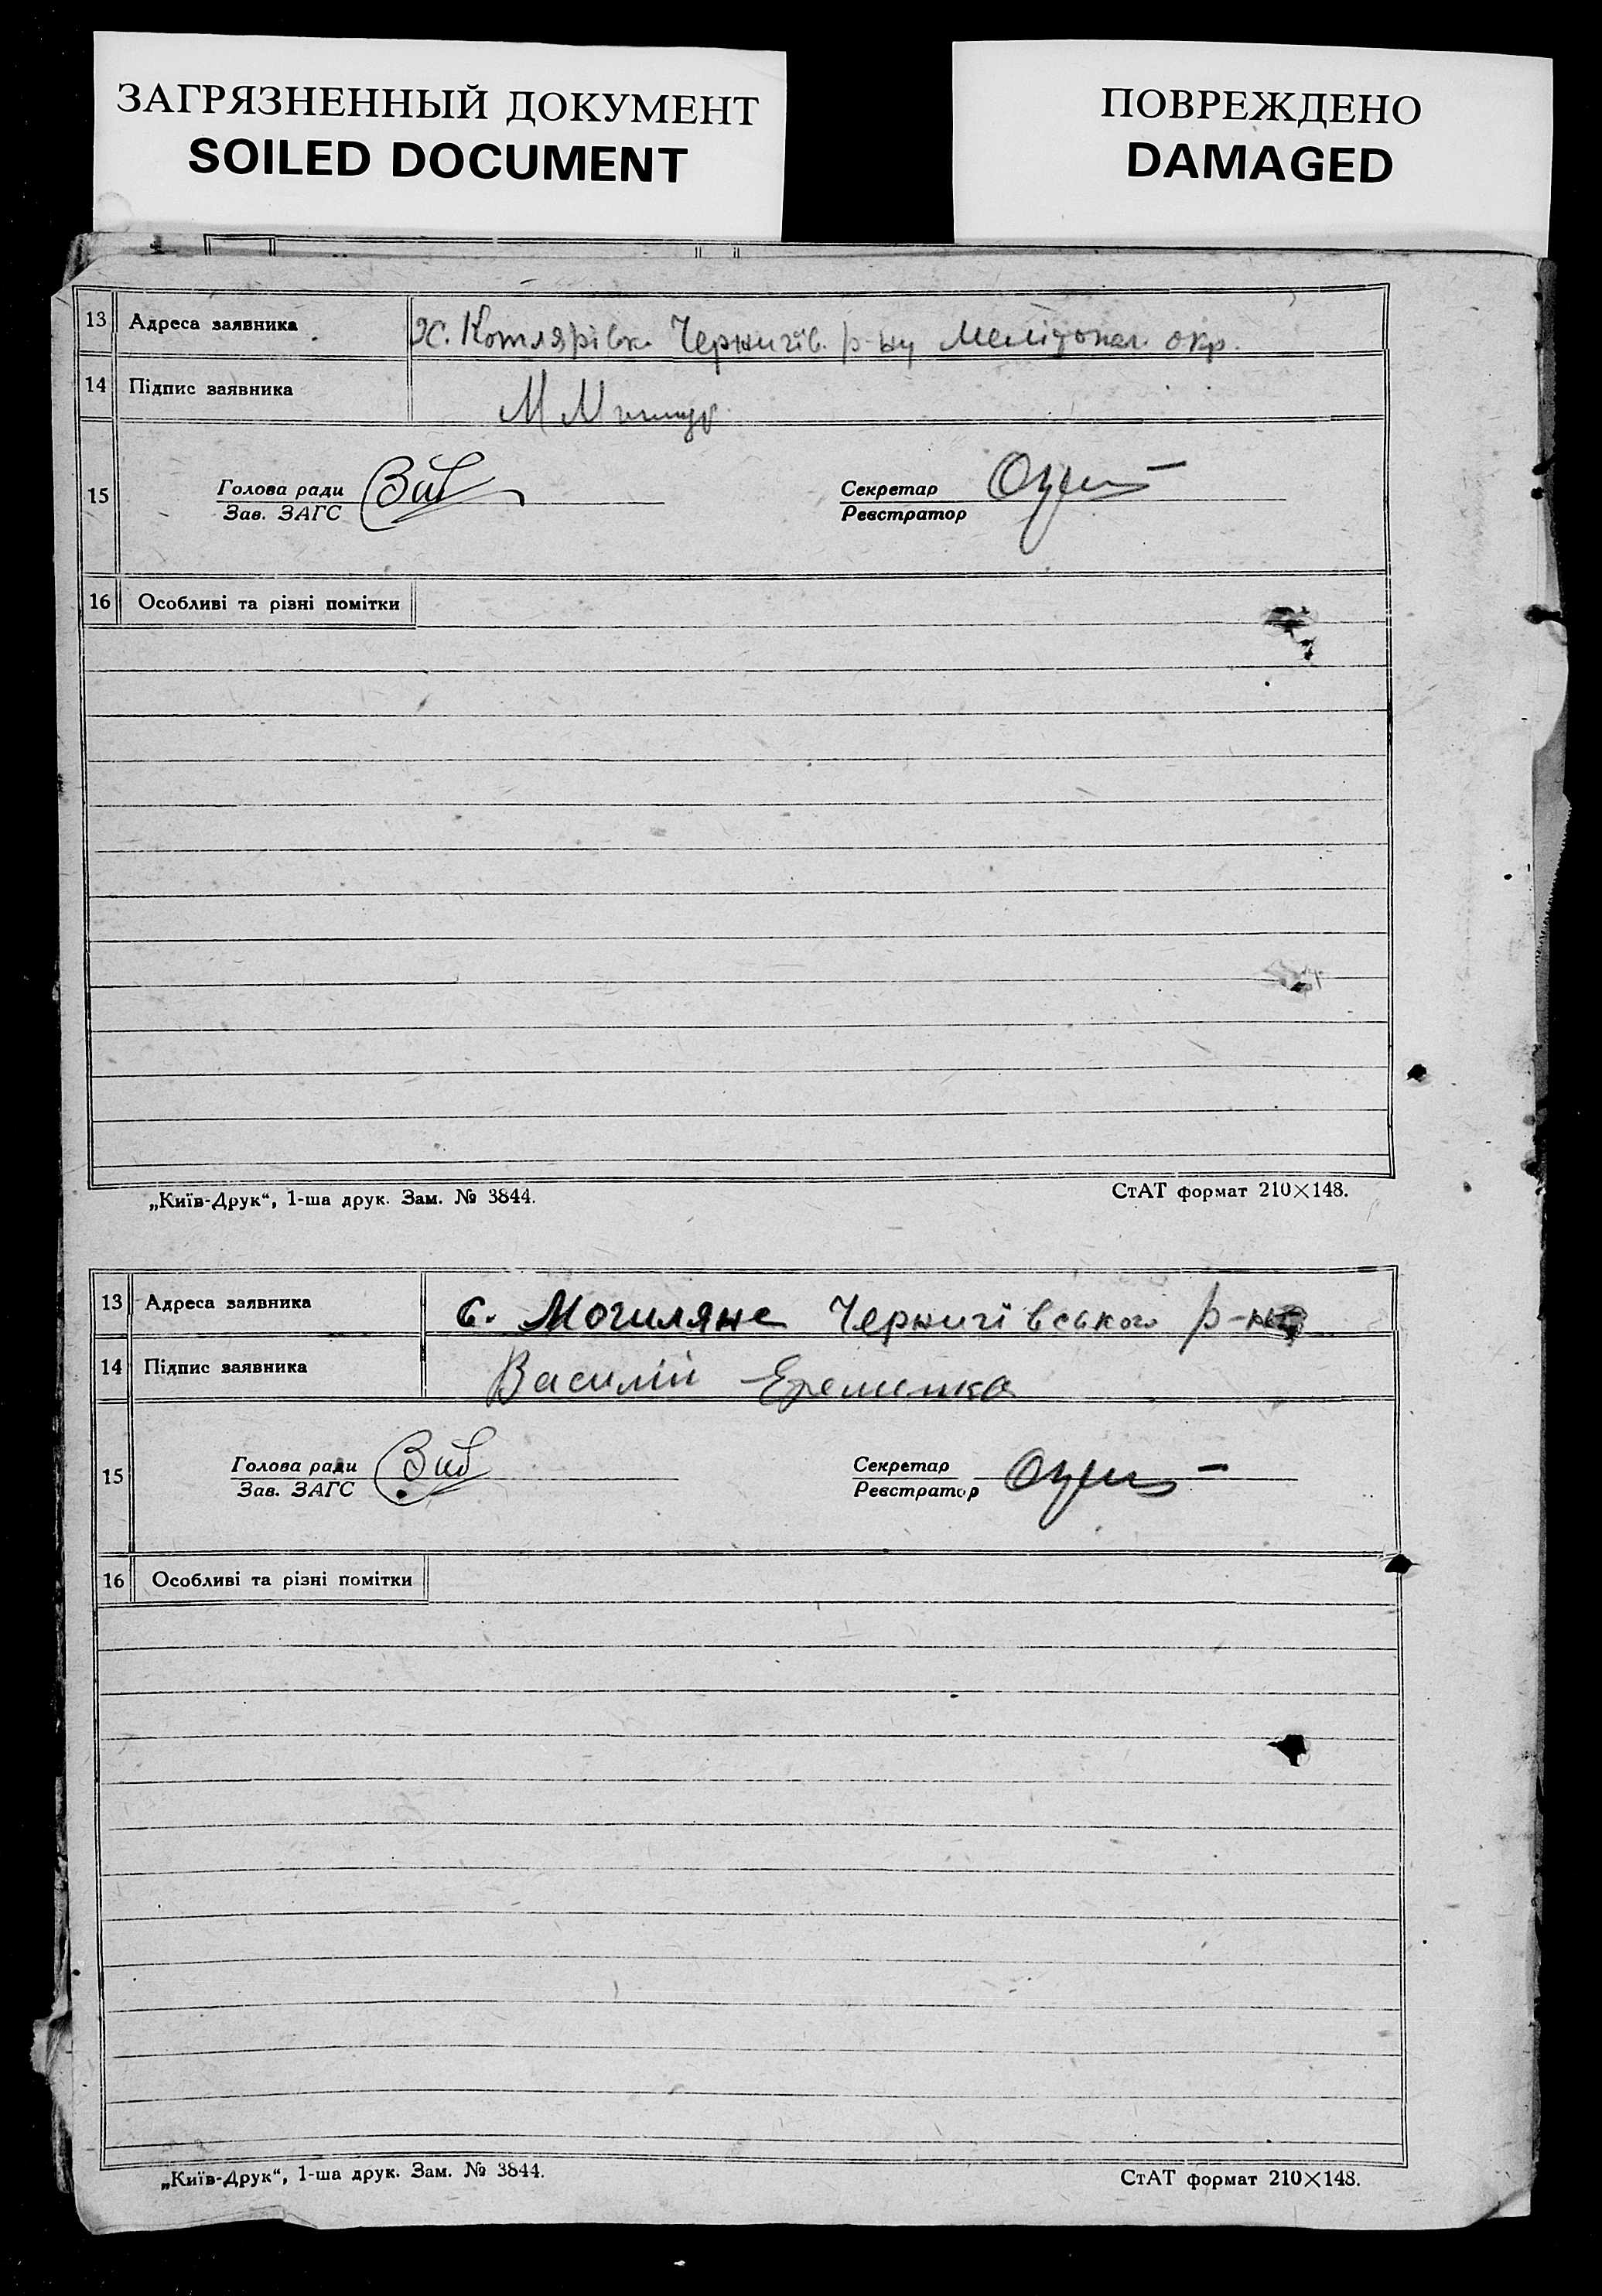 ЗАГРЯЗНЕННЫЙ ДОКУМЕНТ
SOILED DOCUMENT
ПОВРЕЖДЕНО
DAMAGED
13 Адреса заявника Х. Котлярівк. Чернигів. р-ну Мелітопол. окр.
14 Підпис заявника М
15 Голова ради Секретар
Зав. ЗАГС Реєстратор
16 Особливі та різні помітки
„Київ-Друк“, 1-ша друк. Зам. № 3844. СтАТ формат 210×148.
13 Адреса заявника с. Могиляне Чернигівського р-ну
14 Підпис заявника Василий Еременко
15 Голова ради Секретар
Зав. ЗАГС Реєстратор
16 Особливі та різні помітки
„Київ-Друк“, 1-ша друк. Зам. № 3844. СтАТ формат 210×148.